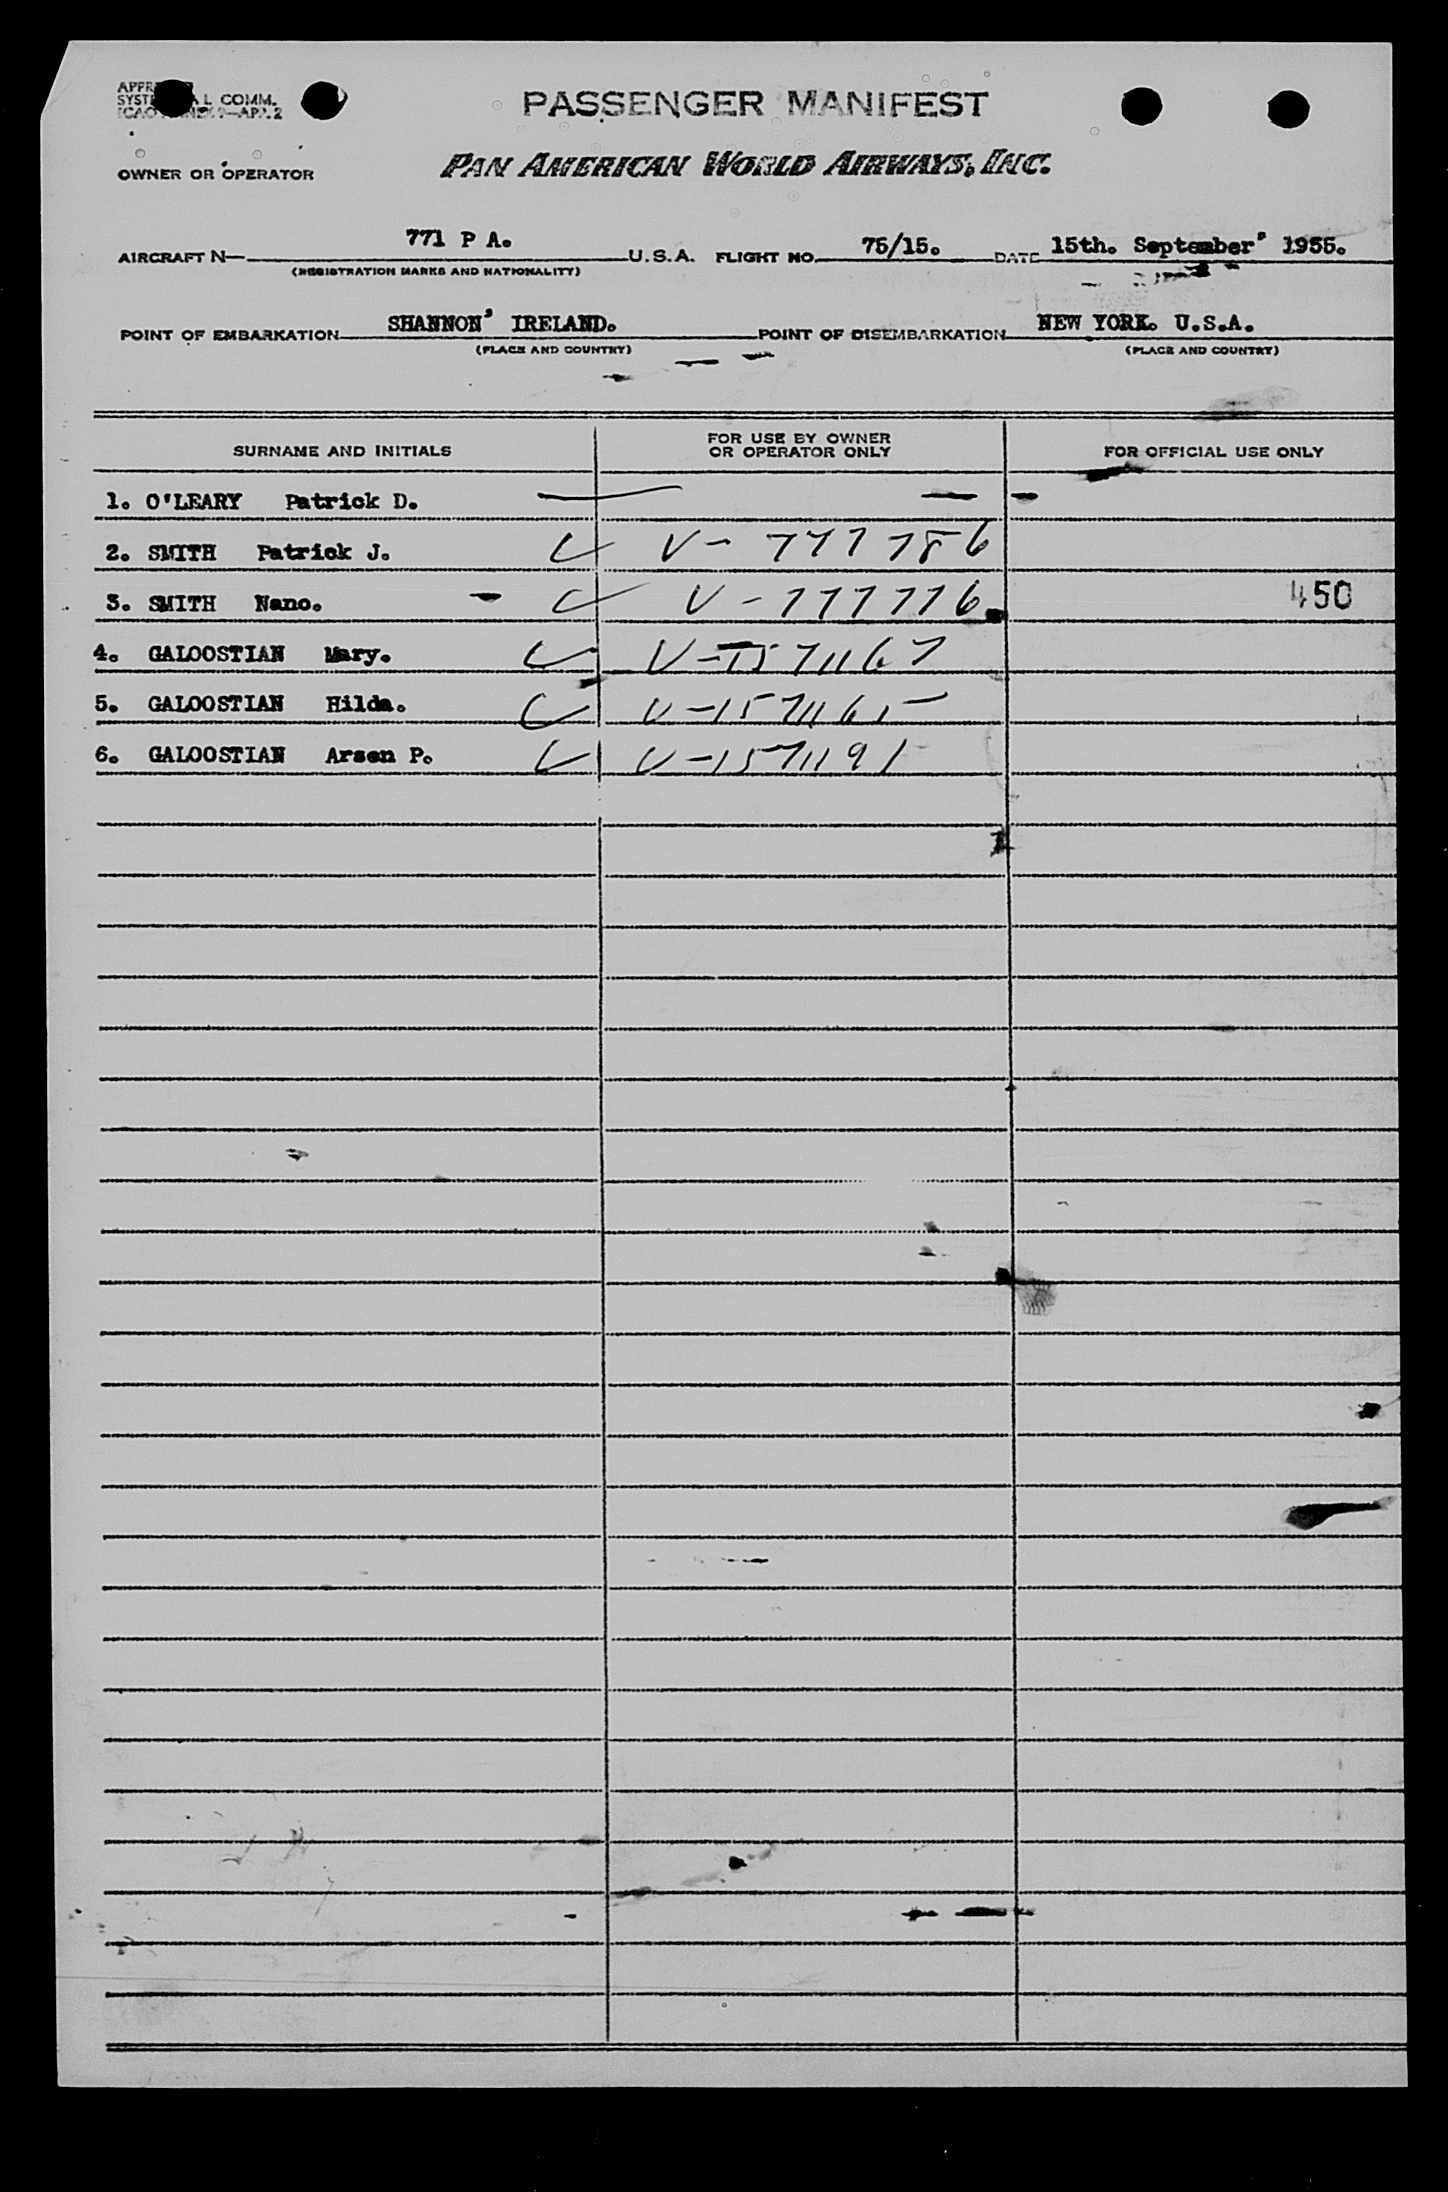 SYST L COMM.
PASSENGER MANIFEST
OWNER OR OPERATOR PAN AMERICAN WORLD AIRWAYS, INC.
AIRCRAFT N— 771 P A. U.S.A. FLIGHT NO. 75/15. DATE 15th. September' 1955.
(REGISTRATION MARKS AND NATIONALITY)
POINT OF EMBARKATION SHANNON' IRELAND. POINT OF DISEMBARKATION NEW YORK. U.S.A.
(PLACE AND COUNTRY) (PLACE AND COUNTRY)
SURNAME AND INITIALS FOR USE BY OWNER OR OPERATOR ONLY FOR OFFICIAL USE ONLY
1. O'LEARY Patrick D. —
2. SMITH Patrick J. V- 777786
3. SMITH Nano. V-777776 450
4. GALOOSTIAN Mary. V-1571167
5. GALOOSTIAN Hilda. V-1571165
6. GALOOSTIAN Arsen P. V-1571191